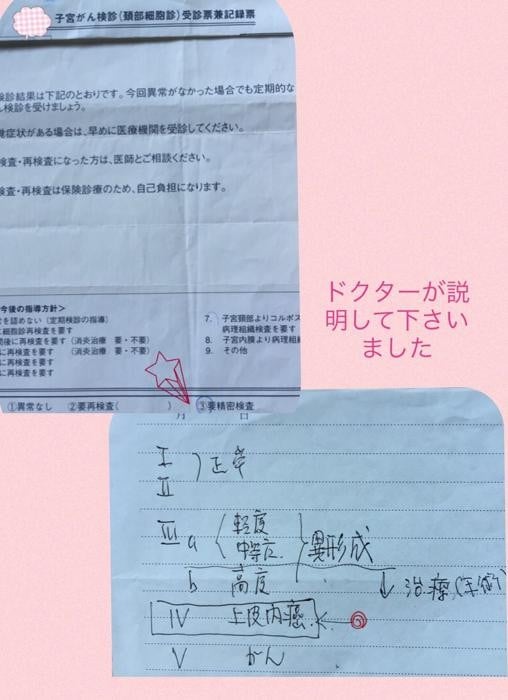 子宮がん検診(頚部細胞診)受診票兼記録票
検診結果は下記のとおりです。今回異常がなかった場合でも定期的な
検診を受けましょう。
症状がある場合は、早めに医療機関を受診してください。
検査・再検査になった方は、医師とご相談ください。
検査・再検査は保険診療のため、自己負担になります。
今後の指導方針>
を認めない(定期検診の指導)
細胞診再検査を要す
後に再検査を要す(消炎治療 要・不要)
に再検査を要す(消炎治療 要・不要)
に再検査を要す
に再検査を要す
7. 子宮頚部よりコルポス
病理組織検査を要す
8. 子宮内膜より病理組
9. その他
①異常なし ②要再検査( ) ③要精密検査
月 日
ドクターが説
明して下さい
ました
I
II
正常
III a
軽度
中等度
異形成
b 高度
治療(手術)
IV 上皮内癌
V がん